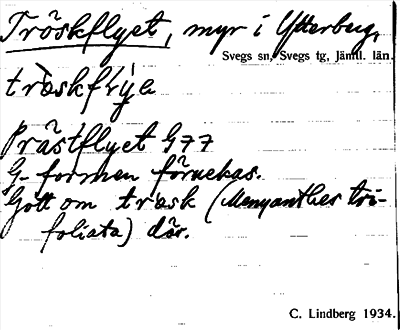 Tröskflyet, myr i Ytterberg,
Svegs sn, Svegs tg, Jämtl. län.
tròskflýe
Prästflyet G 77
G- formen förnekas.
Gott om trösk (Menyanthes tri-
foliata) där.
C. Lindberg 1934.